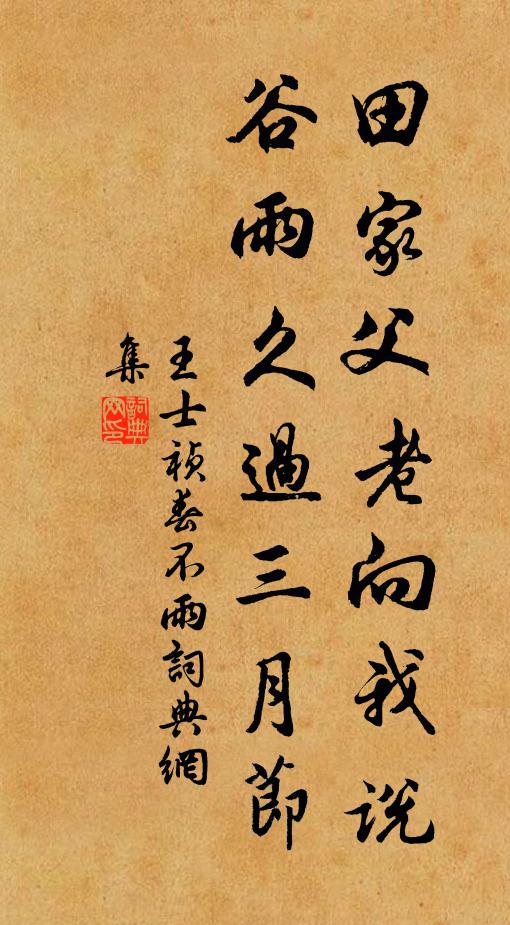 田家父老向我説
谷雨久過三月節
王士祯春不雨詞典網
集
詞典
网印